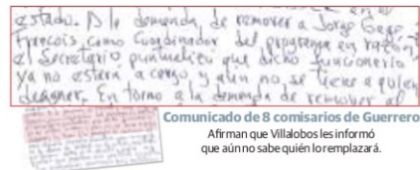 estado. D le demanda, de remover a Jorge
Francois, como Coordinador del programa en razón
el Secretario puntualizo que dicho funcionario
ya no estara a cargo y aún no se tiene a quien
designar. En torno a la demanda de remover al
Comunicado de 8 comisarios de Guerrero
Afirman que Villalobos les informó
que aún no sabe quién lo remplazará.